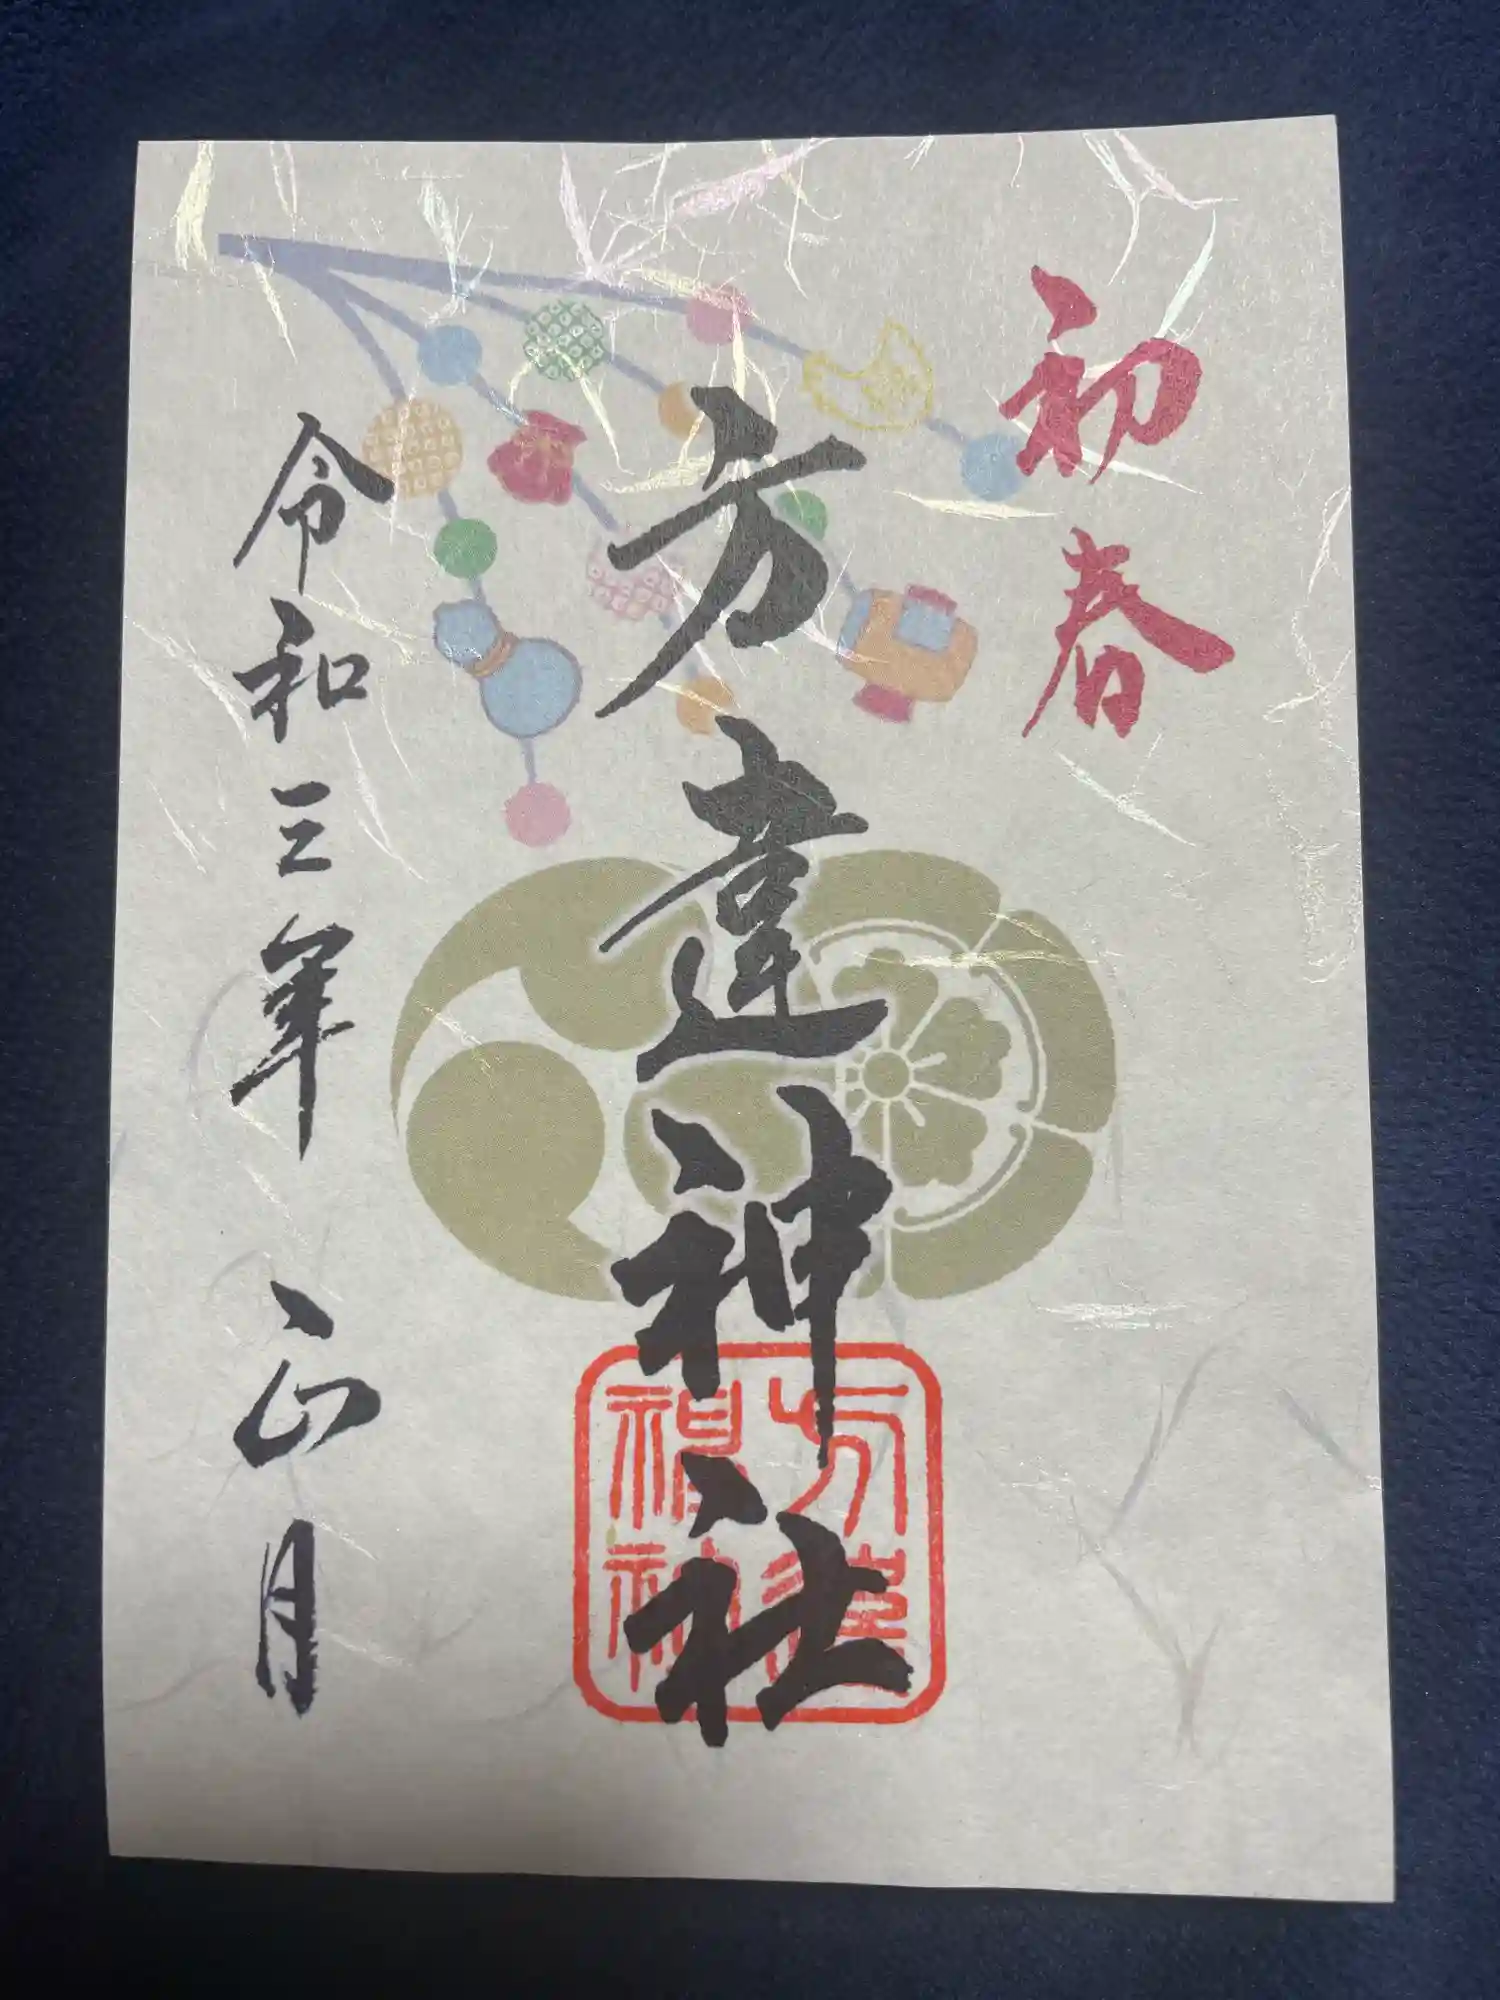 初春
方違神社
方違
神社
令和三年 正月